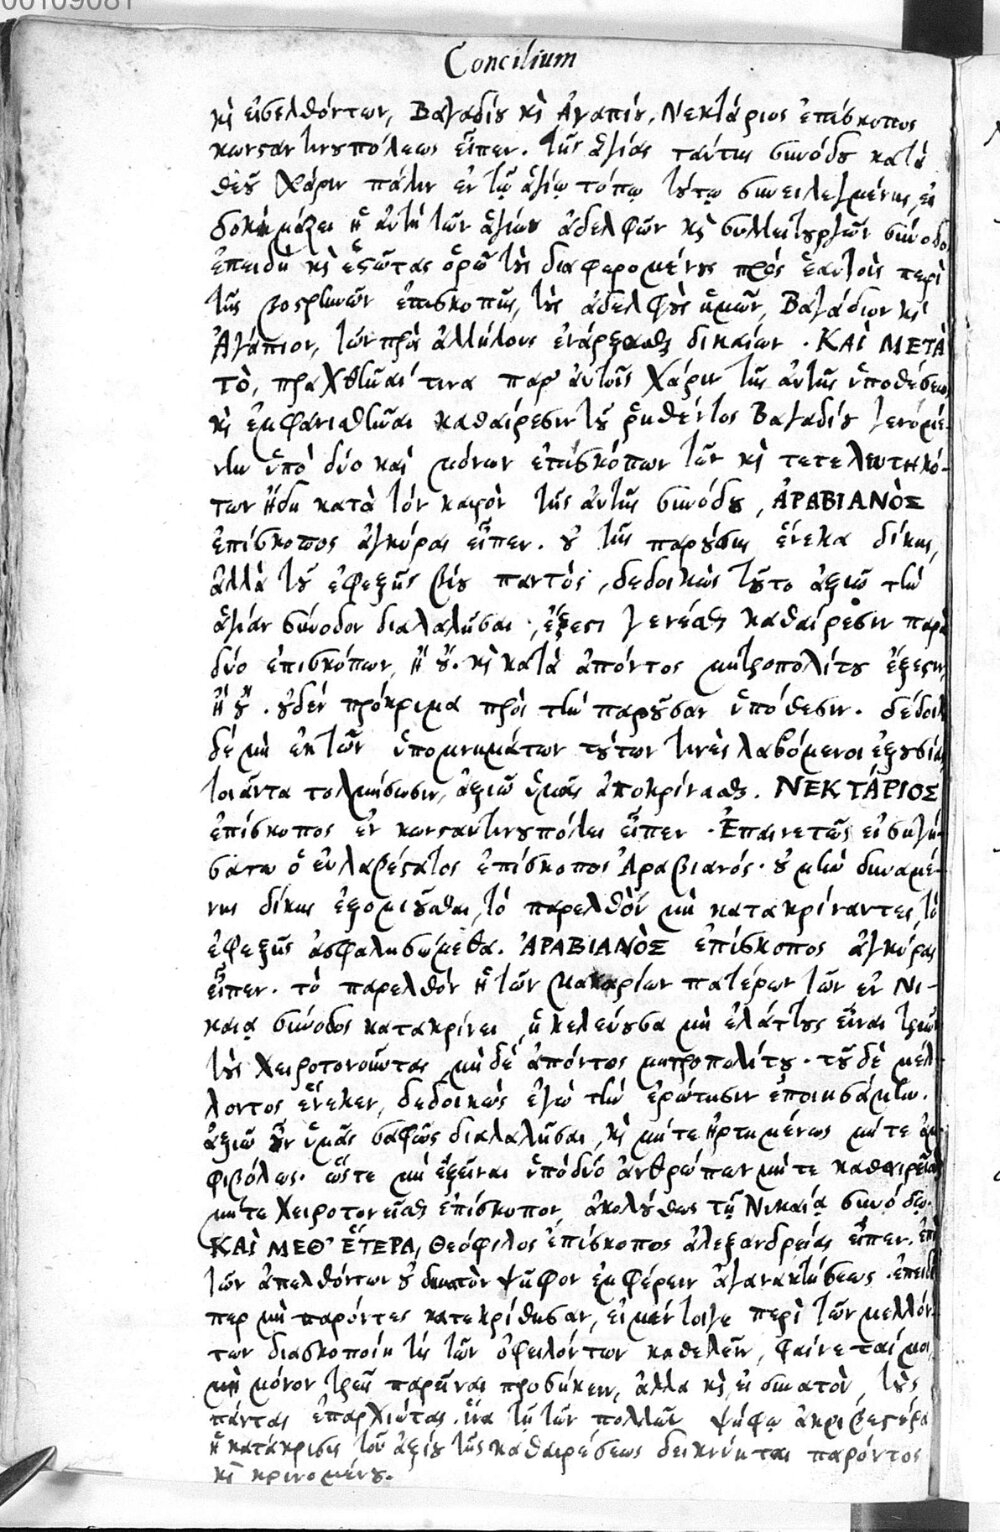 00109081
Concilium
καὶ εἰσελθόντων, Βαγαδίου καὶ Ἀγαπίου, Νεκτάριος ἐπίσκοπος
κωνσταντινουπόλεως εἶπεν. τῆς ἁγίας ταύτης συνόδου κατὰ
θεοῦ χάριν πάλιν ἐν τῷ ἁγίῳ τόπῳ τούτῳ συνειλεγμένης, εἰ
δοκιμάζει ἡ αὐτὴ τῶν ἁγίων ἀδελφῶν καὶ συλλειτουργῶν σύνοδο
ἐπειδὴ καὶ ἑστῶτας ὁρῶ τοὺς διαφερομένους πρὸς ἑαυτοὺς περὶ
τῆς βοσρηνῶν ἐπισκοπῆς, τοὺς ἀδελφοὺς ἡμῶν, Βαγάδιον καὶ
Ἀγάπιον, τῶν πρὸς ἀλλήλους ἐνάρξασθαι δικαίων. ΚΑῚ ΜΕΤᾺ
ΤῸ, πραχθῆναί τινα παρ' αὐτοῖς χάριν τῆς αὐτῆς ὑποθέσεως
καὶ ἐμφανισθῆναι καθαίρεσιν τοῦ ῥηθέντος Βαγαδίου γενομέ-
νην ὑπὸ δύο καὶ μόνων ἐπισκόπων τῶν καὶ τετελευτηκό-
των ἤδη κατὰ τὸν καιρὸν τῆς αὐτῆς συνόδου, ἈΡΑΒΙΑΝῸΣ
ἐπίσκοπος ἀγκύρας εἶπεν. οὐ τῆς παρούσης ἕνεκα δίκης,
ἀλλὰ τοῦ ἐφεξῆς βίου παντὸς, δεδοικὼς τοῦτο ἀξιῶ τὴν
ἁγίαν σύνοδον διαλαλῆσαι, ἔξεστι γενέσθαι καθαίρεσιν παρὰ
δύο ἐπισκόπων, ἢ οὔ. καὶ κατὰ ἀπόντος μητροπολίτου ἔξεστιν,
ἢ οὔ. οὐδὲν πρόκριμα πρὸς τὴν παροῦσαν ὑπόθεσιν. δέδοικα
δὲ μὴ ἐκ τῶν ὑπομνημάτων τούτων τινὲς λαβόμενοι ἐξουσίαν
τοιαῦτα τολμήσωσιν, ἀξιῶ ὑμᾶς ἀποκρίνασθαι. ΝΕΚΤΆΡΙΟΣ
ἐπίσκοπος ἐν κωνσταντινουπόλει εἶπεν. Ἐπαινετῶς εἰσηγή-
σατο ὁ εὐλαβέστατος ἐπίσκοπος Ἀραβιανός. οὐ μὴν δυναμέ-
νης δίκης ἐξομιοῦσθαι, τὸ παρελθὸν μὴ κατακρίναντες, τὸ
ἐφεξῆς ἀσφαλησώμεθα. ἈΡΑΒΙΑΝῸΣ ἐπίσκοπος ἀγκύρας
εἶπεν. τὸ παρελθὸν ἡ τῶν μακαρίων πατέρων τῶν ἐν Νι-
καίᾳ σύνοδος κατακρίνει, ἡ κελεύουσα μὴ ἐλάττους εἶναι τριῶν
τοὺς χειροτονοῦντας μὴ δὲ ἀπόντος μητροπολίτου. τοῦ δὲ μέλ-
λοντος ἕνεκεν, δεδοικὼς ἐγὼ τὴν ἐρώτησιν ἐποιησάμην.
ἀξιῶ οὖν ὑμᾶς σαφῶς διαλαλῆσαι, καὶ μήτε ἠρτημένως μήτε ἀμ-
φιβόλως. ὥστε μὴ ἐξεῖναι ὑπὸ δύο ἀνθρώπων μήτε καθαιρεῖσθαι
μήτε χειροτονεῖσθαι ἐπίσκοπον, ἀκολούθως τῇ Νικαίᾳ συνόδῳ.
ΚΑῚ ΜΕΘ' ἝΤΕΡΑ, Θεόφιλος ἐπίσκοπος ἀλεξανδρείας εἶπεν. ἐπὶ
τῶν ἀπελθόντων οὐ δυνατὸν ψῆφον ἐκφέρειν ἀγανακτήσεως. ἐπειδή
περ μὴ παρόντες κατεκρίθησαν, εἰ μέντοιγε περὶ τῶν μελλόν-
των διασκοποίη τὶς τῶν ὀφειλόντων καθελεῖν, φαίνεταί μοι,
μὴ μόνον τρεῖς παρεῖναι προσήκειν, ἀλλὰ καὶ, εἰ δυνατὸν, τοὺς
πάντας ἐπαρχιώτας. ἵνα τῇ τῶν πολλῶν ψήφῳ ἀκριβεστέρα
ἡ κατάκρισις τοῦ ἀξίου τῆς καθαιρέσεως δεικνύηται παρόντος
καὶ κρινομένου.